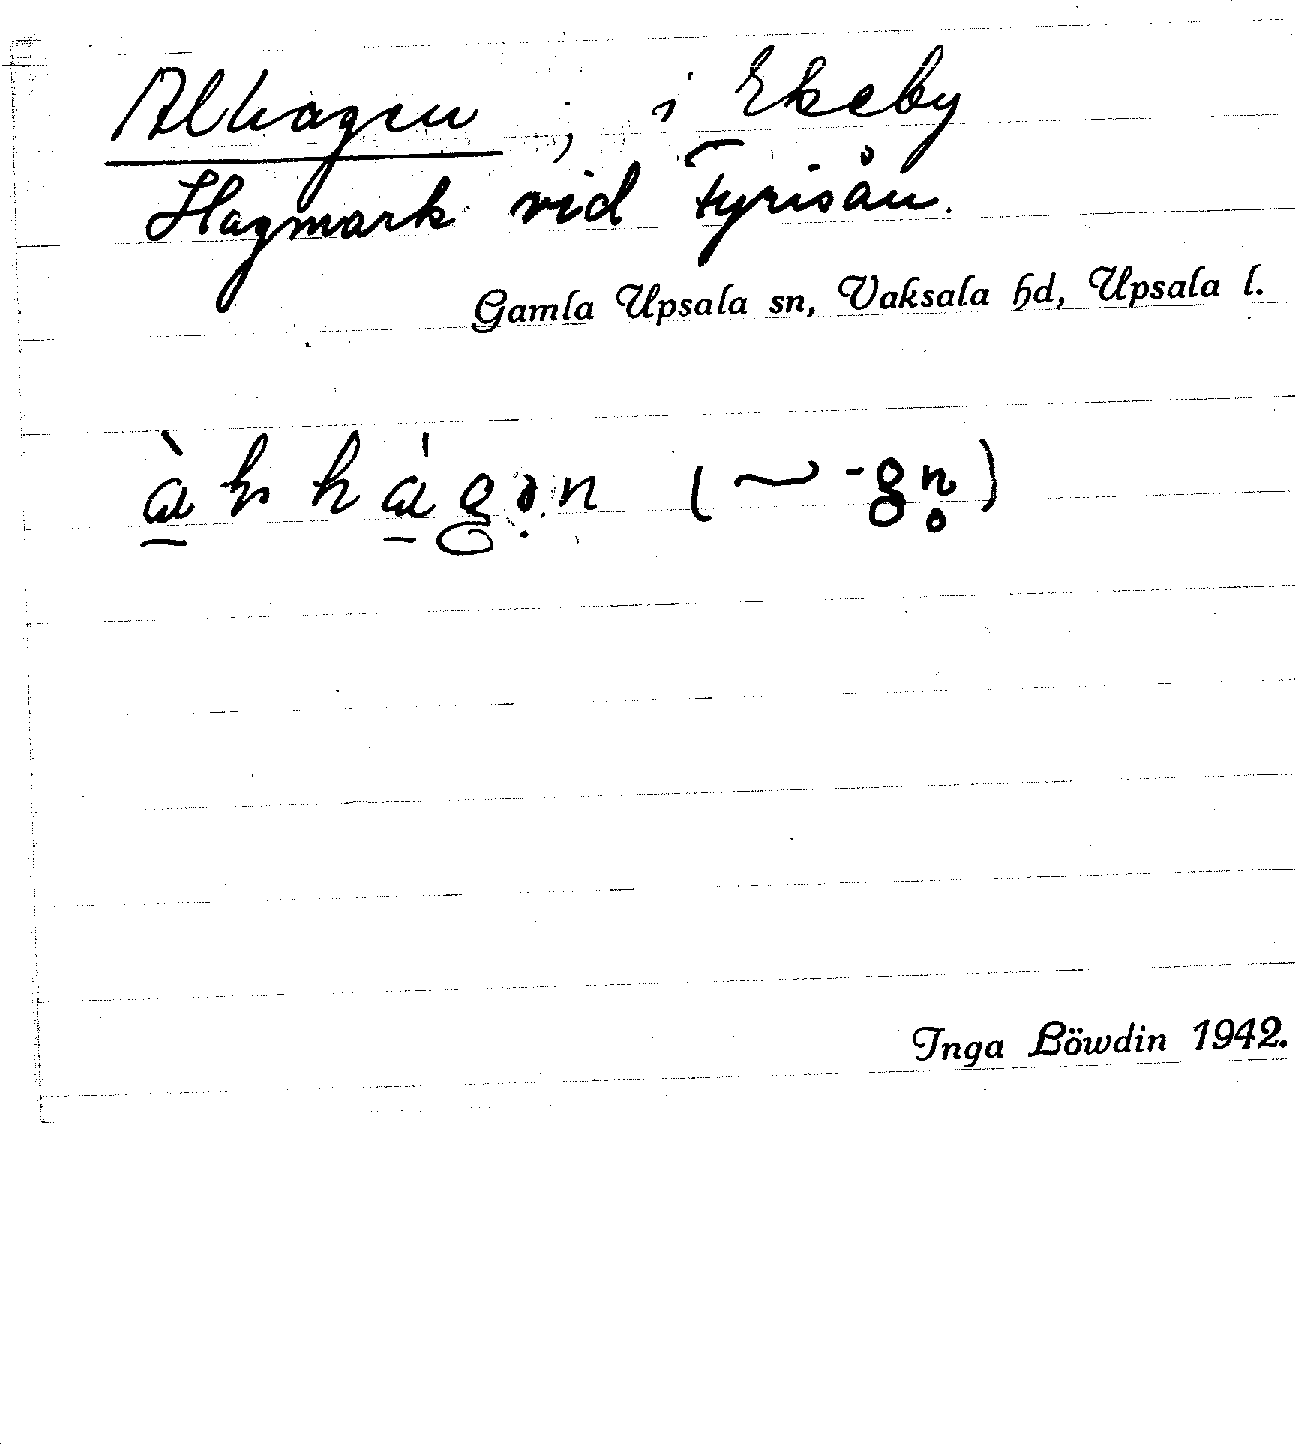 Alhagen, i Ekeby
Hagmark vid Fyrisån.
Gamla Upsala sn, Vaksala hd, Upsala l.
hágən (~ -gn̥)
Inga Löwdin 1942.